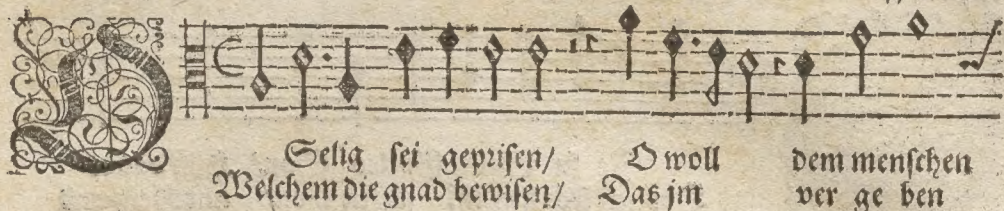 O
Selig sei geprisen/ O woll dem menschen
Welchem die gnad bewisen/ Das jm ver ge ben